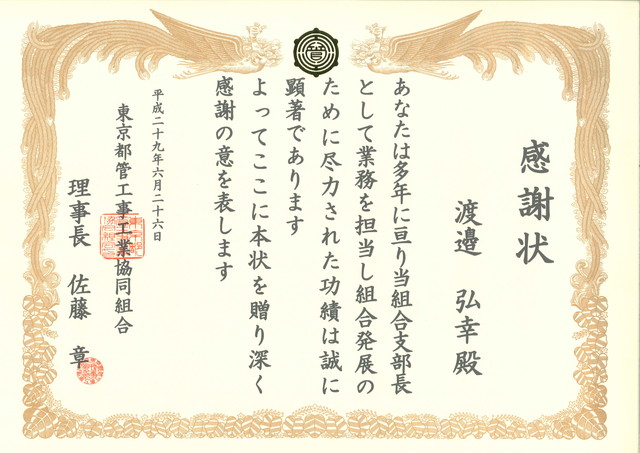 感謝状
渡邉 弘幸殿
あなたは多年に亘り当組合支部長
として業務を担当し組合発展の
ために尽力された功績は誠に
顕著であります
よってここに本状を贈り深く
感謝の意を表します
平成二十九年六月二十六日
東京都管工事工業協同組合
理事長 佐藤 章